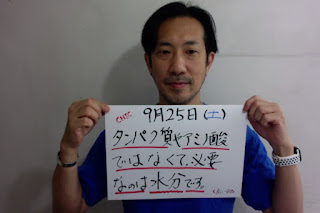 9月25日(土)
タンパク質やアミノ酸
ではなくて、必要
なのは水分です。